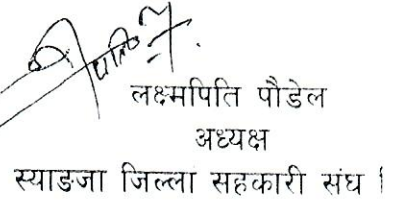 लक्ष्मपिति पौडेल
अध्यक्ष
स्याङजा जिल्ला सहकारी संघ ।